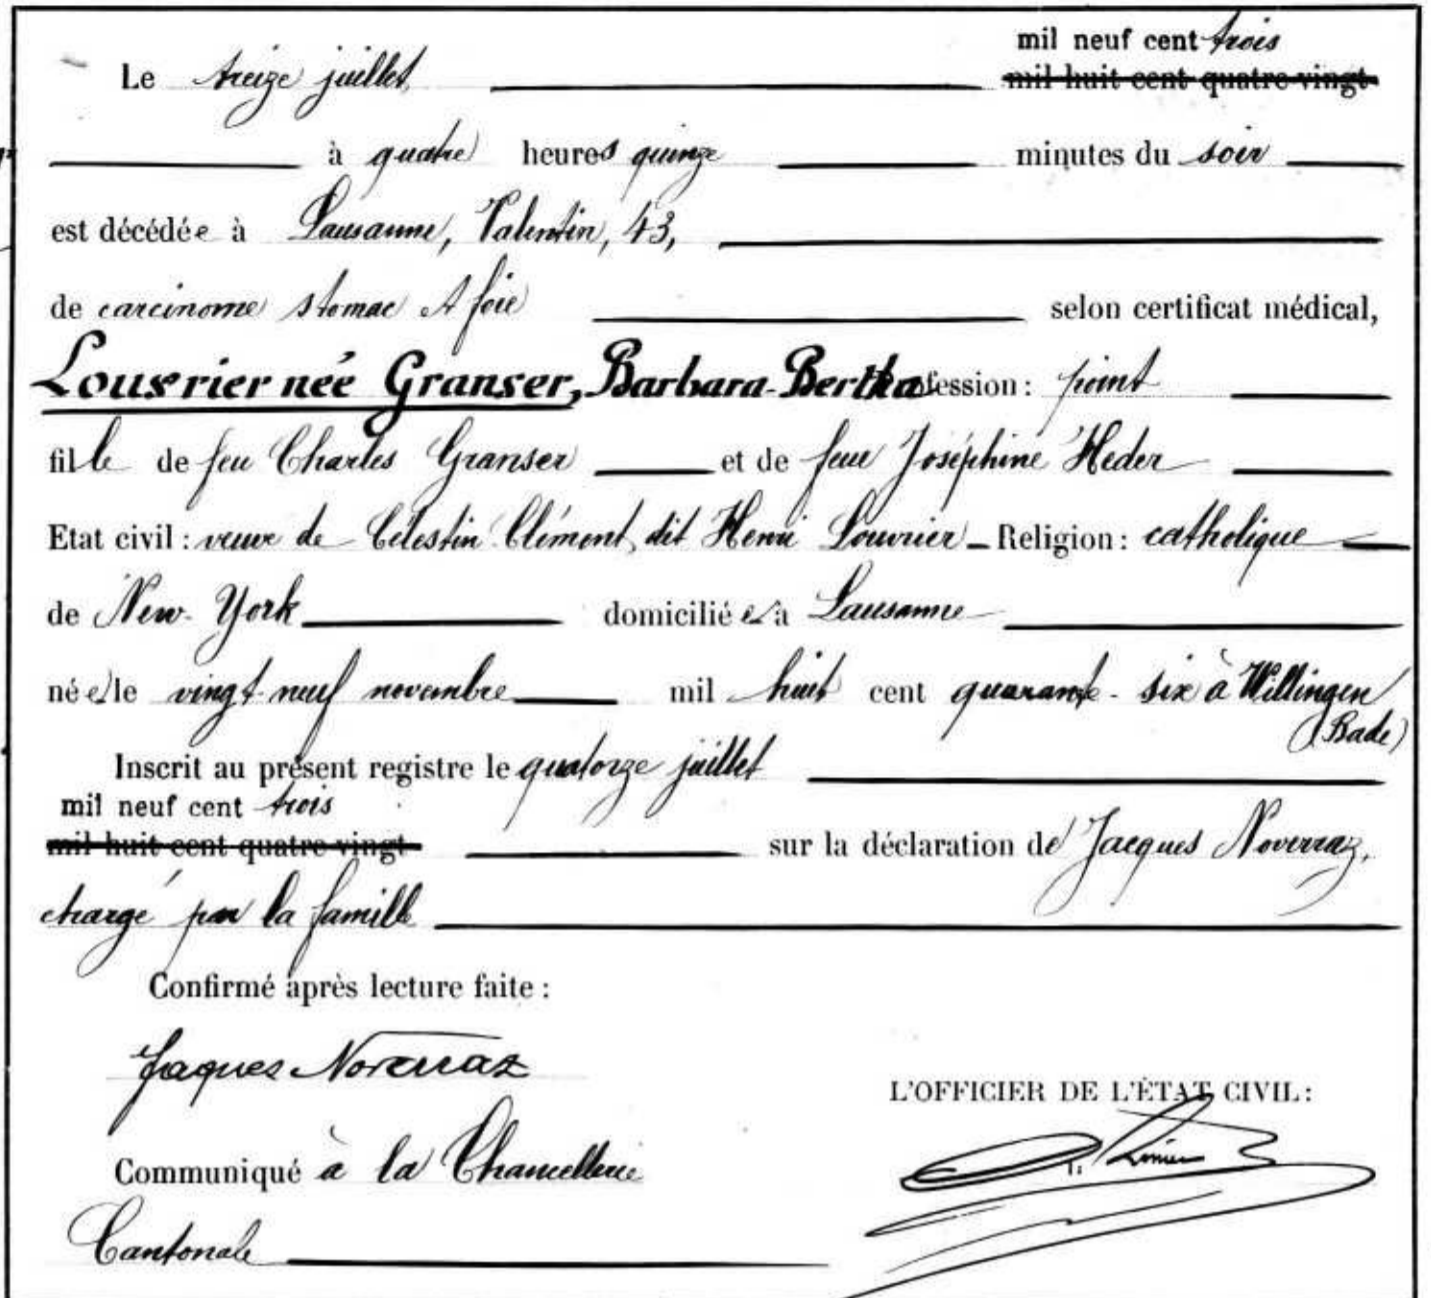 mil neuf cent trois
Le treize juillet mil huit cent quatre-vingt
à quatre heures quinze minutes du soir
est décédée à Lausanne, Valentin, 43,
de carcinome stomac et foie selon certificat médical,
Louvrier née Granser, Barbara-Bertha Profession: point
fille de feu Charles Granser et de feue Joséphine Heder
Etat civil: veuve de Célestin Clément, dit Henri Louvrier - Religion: catholique
de New-York domiciliée à Lausanne
née le vingt-neuf novembre mil huit cent quarante-six à Willingen
(Bade)
Inscrit au présent registre le quatorze juillet
mil neuf cent trois
mil huit cent quatre-vingt sur la déclaration de Jacques Noverraz,
chargé par la famille
Confirmé après lecture faite:
Jaques Noverraz
L'OFFICIER DE L'ÉTAT CIVIL:
Communiqué à la Chancellerie
Cantonale